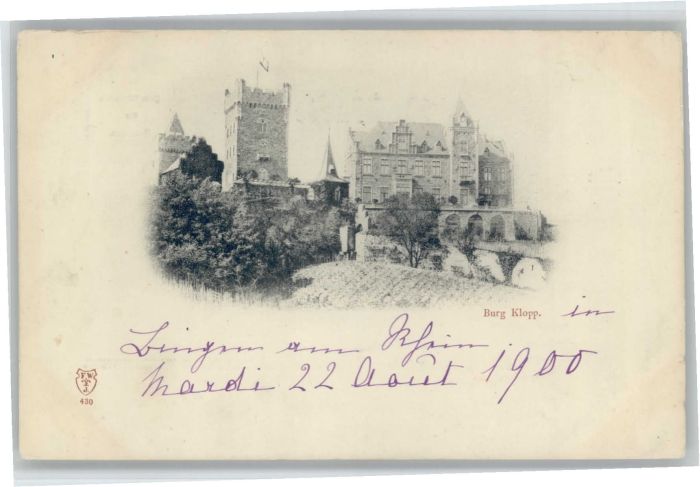 Burg Klopp. in
Bingen am Rhein.
Mardi 22 Août 1900
F.W
J.
430